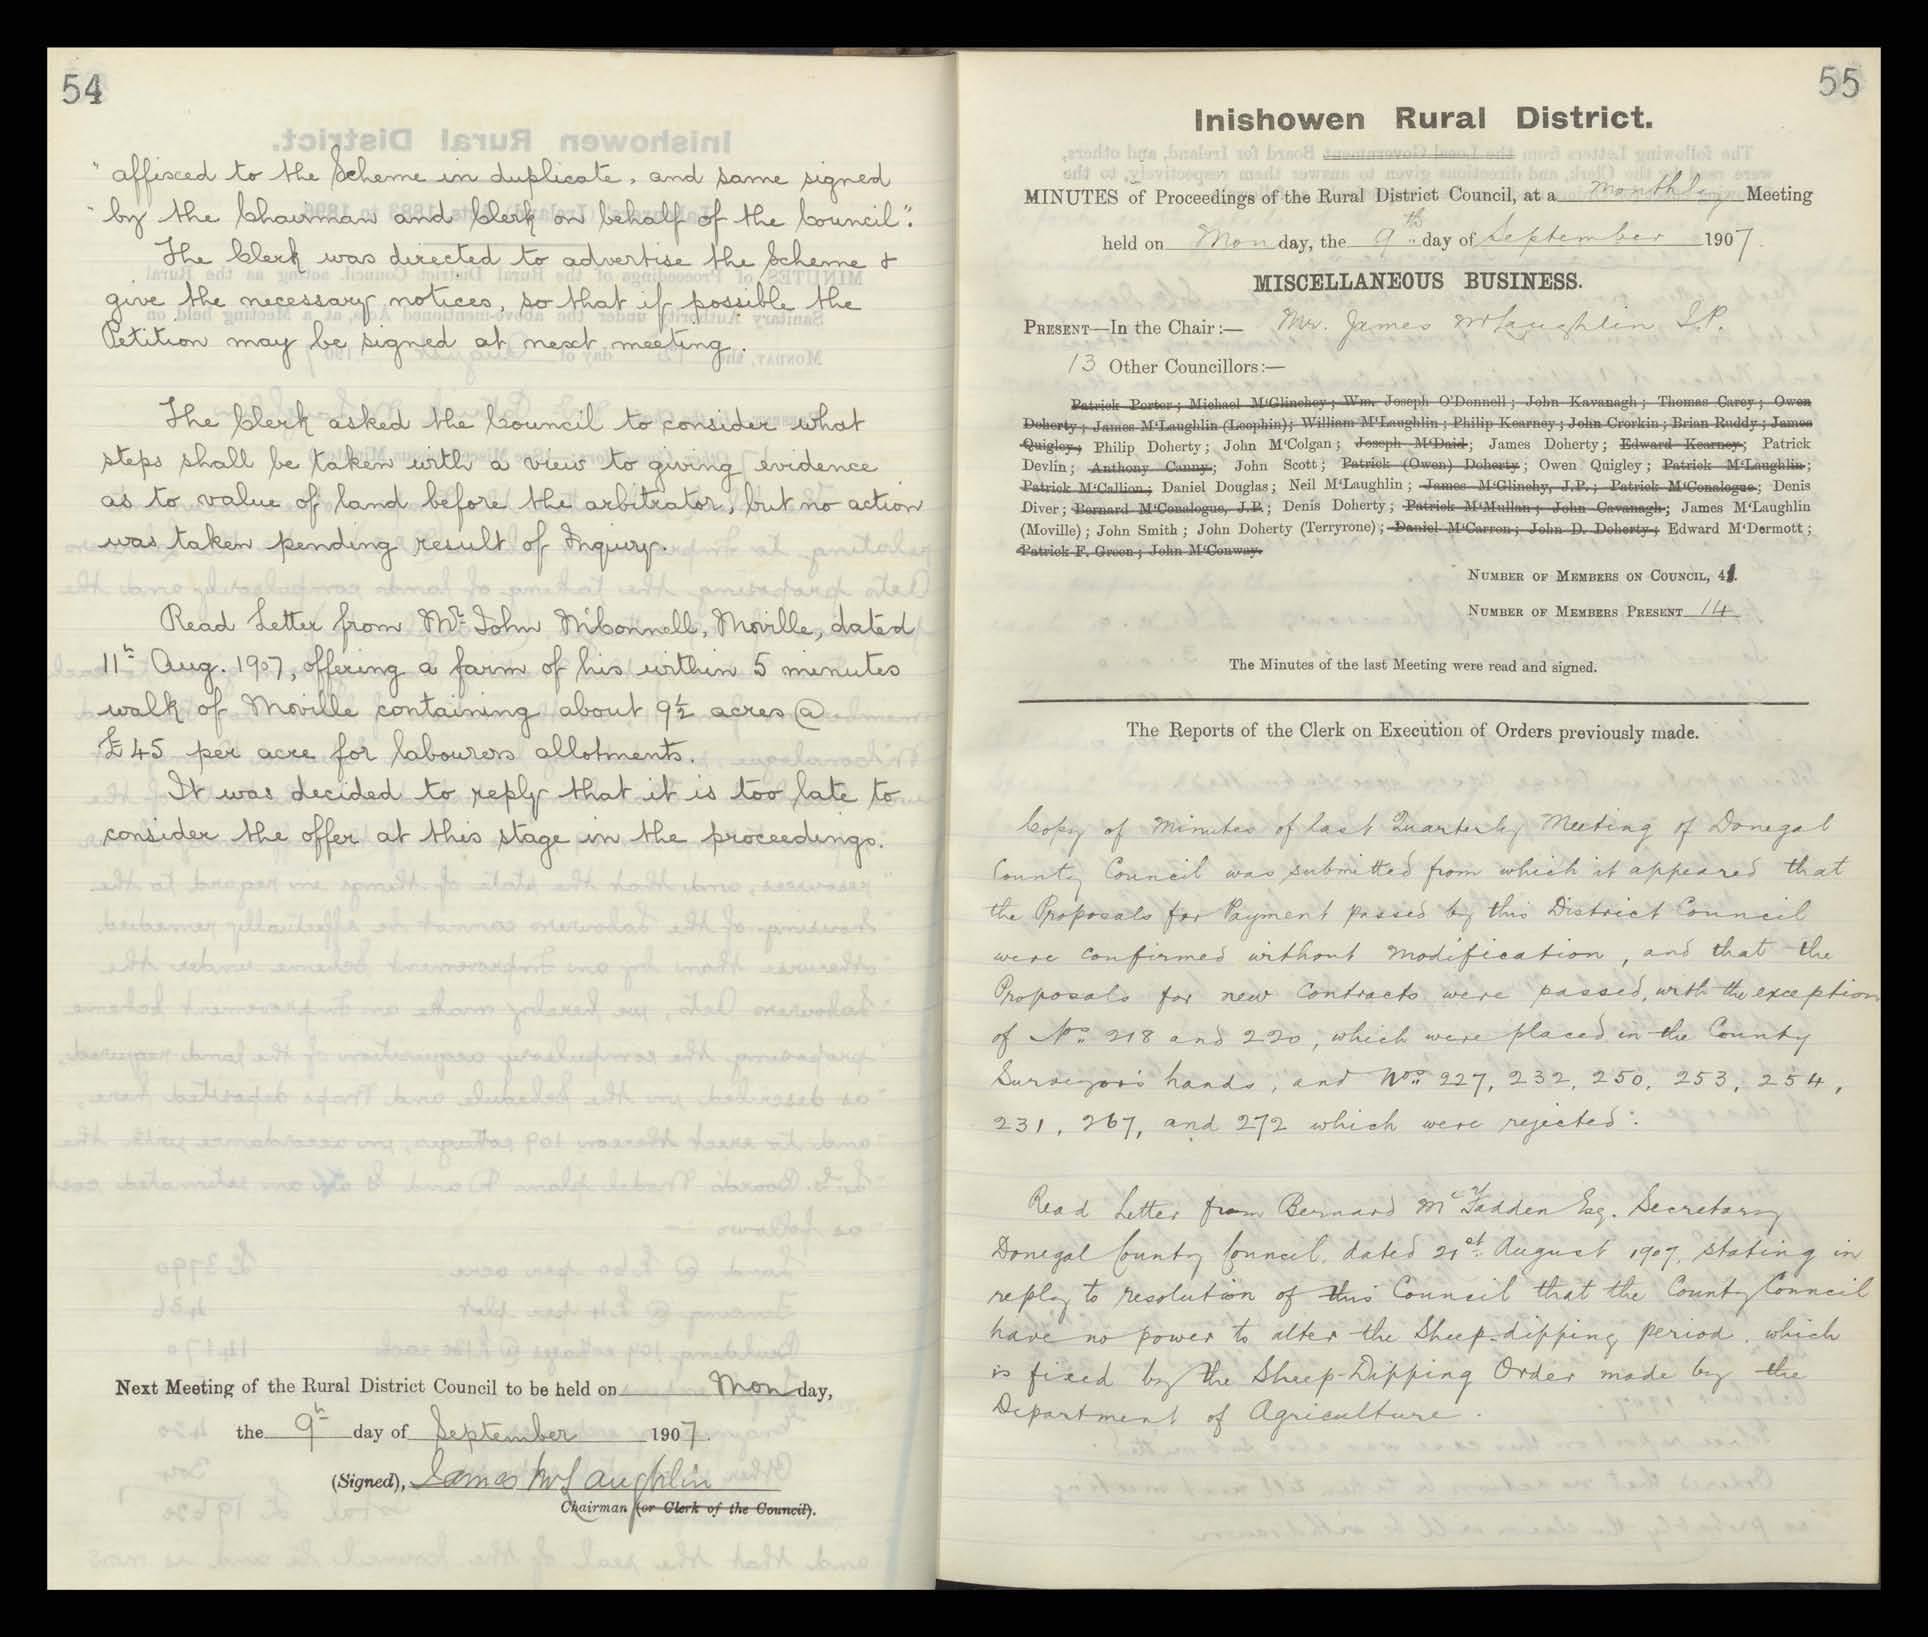 54
" affixed to the Scheme in duplicate, and same signed
" by the Chairman and Clerk on behalf of the Council".
The Clerk was directed to advertise the Scheme &
give the necessary notices, so that if possible the
Petition may be signed at next meeting.
The Clerk asked the Council to consider what
steps shall be taken with a view to giving evidence
as to value of land before the arbitrator, but no action
was taken pending result of Inquiry.
Read Letter from Mr. John McConnell, Moville, dated
11h Aug. 1907, offering a farm of his within 5 minutes
walk of Moville containing about 9½ acres @
£45 per acre for labourers allotments.
It was decided to reply that it is too late to
consider the offer at this stage in the proceedings.
Next Meeting of the Rural District Council to be held on Monday,
the 9h day of September 1907.
(Signed), James McLaughlin
Chairman (or Clerk of the Council).
55
Inishowen Rural District.
MINUTES of Proceedings of the Rural District Council, at a monthly Meeting
held on Monday, the 9th day of September 1907.
MISCELLANEOUS BUSINESS.
PRESENT—In the Chair:— Mr. James McLaughlin J.P.
13 Other Councillors:—
Patrick Porter; Michael M'Glinchey; Wm. Joseph O'Donnell; John Kavanagh; Thomas Carey; Owen
Doherty; James M'Laughlin (Leophin); William M'Laughlin; Philip Kearney; John Crorkin; Brian Ruddy; James
Quigley; Philip Doherty; John M'Colgan; Joseph M'Daid; James Doherty; Edward Kearney; Patrick
Devlin; Anthony Canny; John Scott; Patrick (Owen) Doherty; Owen Quigley; Patrick M'Laughlin;
Patrick M'Callion; Daniel Douglas; Neil M'Laughlin; James M'Glinchy, J.P.; Patrick M'Conalogue; Denis
Diver; Bernard M'Conalogue, J.P.; Denis Doherty; Patrick M'Mullan; John Cavanagh; James M'Laughlin
(Moville); John Smith; John Doherty (Terryrone); Daniel M'Carron; John D. Doherty; Edward M'Dermott;
Patrick F. Green; John M'Conway.
NUMBER OF MEMBERS ON COUNCIL, 41.
NUMBER OF MEMBERS PRESENT 14
The Minutes of the last Meeting were read and signed.
The Reports of the Clerk on Execution of Orders previously made.
Copy of Minutes of last Quarterly Meeting of Donegal
County Council was submitted from which it appeared that
the Proposals for Payment passed by this District Council
were confirmed without modification, and that the
Proposals for new Contracts were passed, with the exception
of Nos. 218 and 220, which were placed in the County
Surveyor's hands, and Nos. 227, 232, 250, 253, 254,
231, 267, and 272 which were rejected:
Read Letter from Bernard McFadden Esq. Secretary
Donegal County Council, dated 21st August 1907, stating in
reply to resolution of this Council that the County Council
have no power to alter the Sheep-dipping period, which
is fixed by the Sheep-Dipping Order made by the
Department of Agriculture.